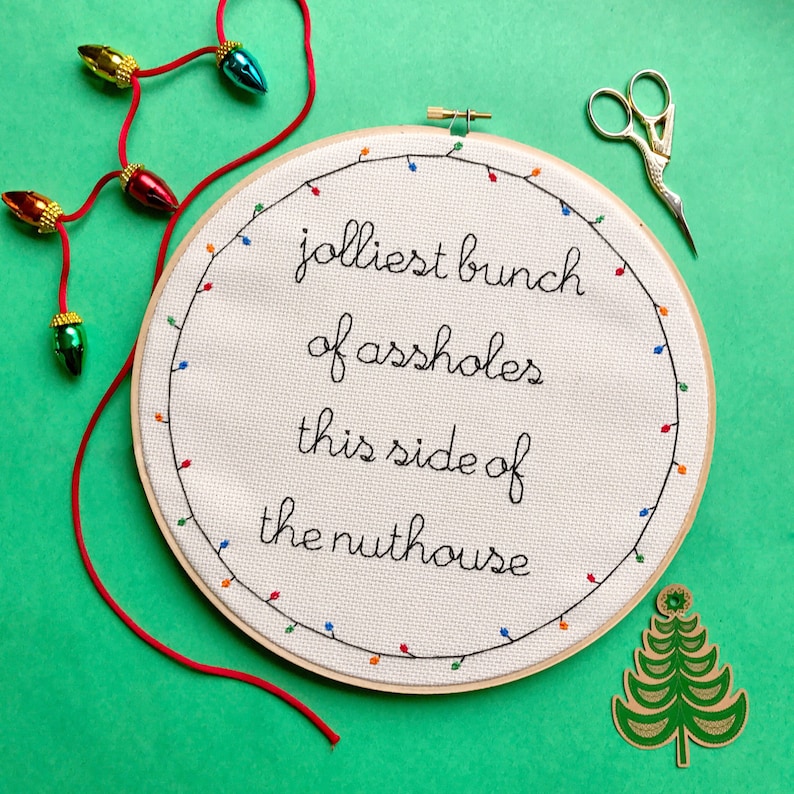 jolliest bunch
of assholes
this side of
the nuthouse